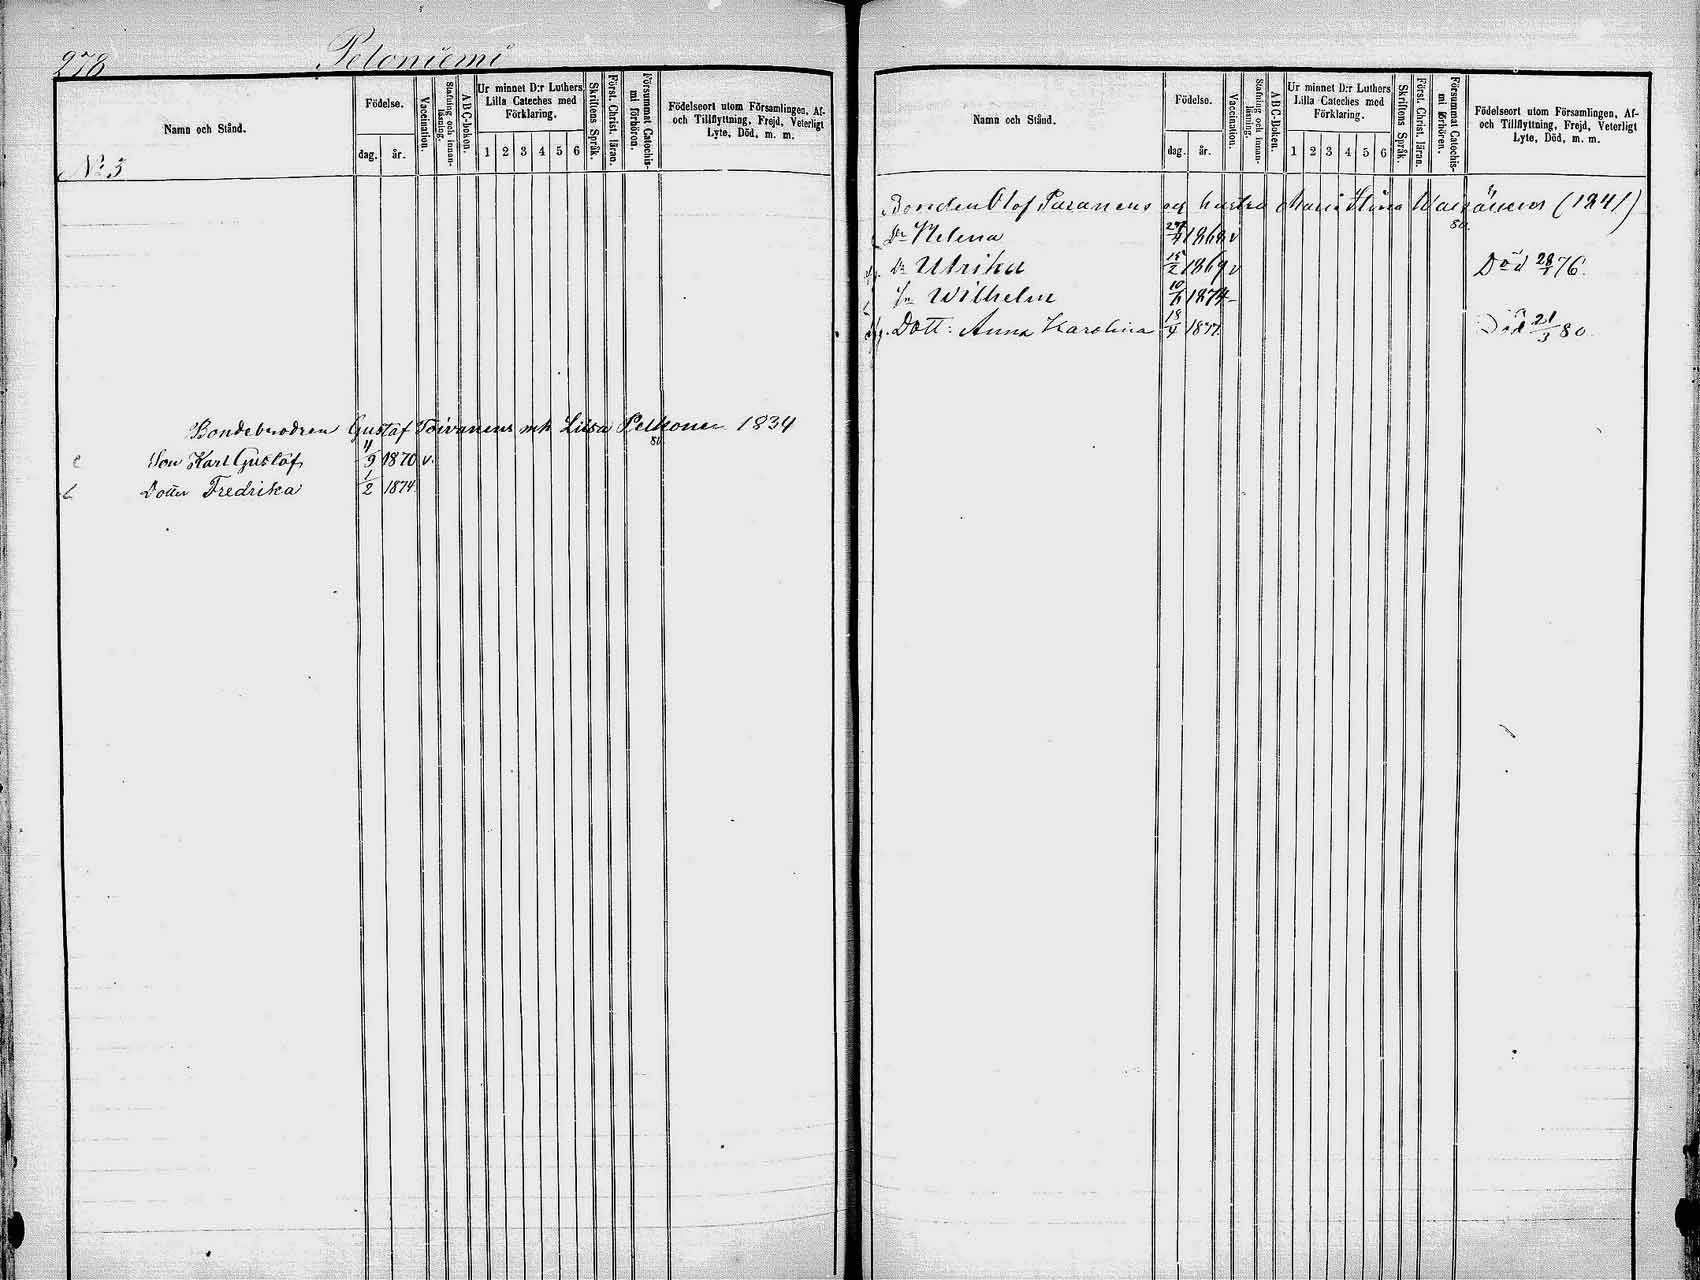 278
Peloniemi
Namn och Stånd.
Födelse.
dag. år.
Vaccination.
Stafning och innan-läsning.
ABC-boken.
Ur minnet D:r Luthers Lilla Cateches med Förklaring.
1 2 3 4 5 6
Skriftens Språk.
Först. Christ. läran.
Försummat Catechis-mi förhören.
Födelseort utom Församlingen, Af-
och Tillflyttning, Frejd, Veterligt
Lyte, Död, m. m.
No 3
Bondebrodren Gustaf Toivanens mk Liisa Pelkonen 1834
80
Son Karl Gustaf 4/9 1870 v.
Dotter Fredrika 1/2 1874
Namn och Stånd.
Födelse.
dag. år.
Vaccination.
Stafning och innan-läsning.
ABC-Boken.
Ur minnet D:r Luthers Lilla Cateches med Förklaring.
1 2 3 4 5 6
Skriftens Språk.
Först. Christ. läran.
Försummat Catechis-mi förhören.
Födelseort utom Församlingen, Af-
och Tillflyttning, Frejd, Veterligt
Lyte, Död, m. m.
Bonden Olof Puranens och hustru Maria Stina (1841)
80.
Dr Helena 1868 v
Dr Ulrika 15/2 1869 v Död 28/1 76.
Sn Wilhelm 1874
Dott: Anna Karolina 18/4 1877. Död 21/3 80.